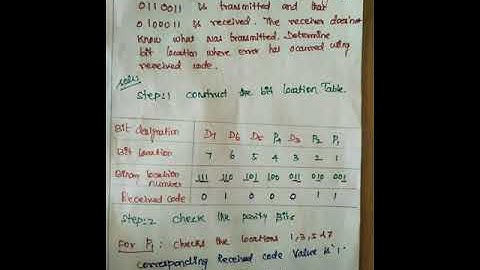 0110011 is transmitted and that
0100011 is received. The receiver doesn't
know what was transmitted. Determine
bit location where error has occurred using
received code.
Step:1 construct the bit location Table.
Bit designation D7 D6 D5 P4 D3 P2 P1
Bit location 7 6 5 4 3 2 1
Binary location number 111 110 101 100 011 010 001
Received code 0 1 0 0 0 1 1
Step:2 check the parity Bits
For P1: checks the locations 1,3,5 &7
corresponding Received code Value is '1'.